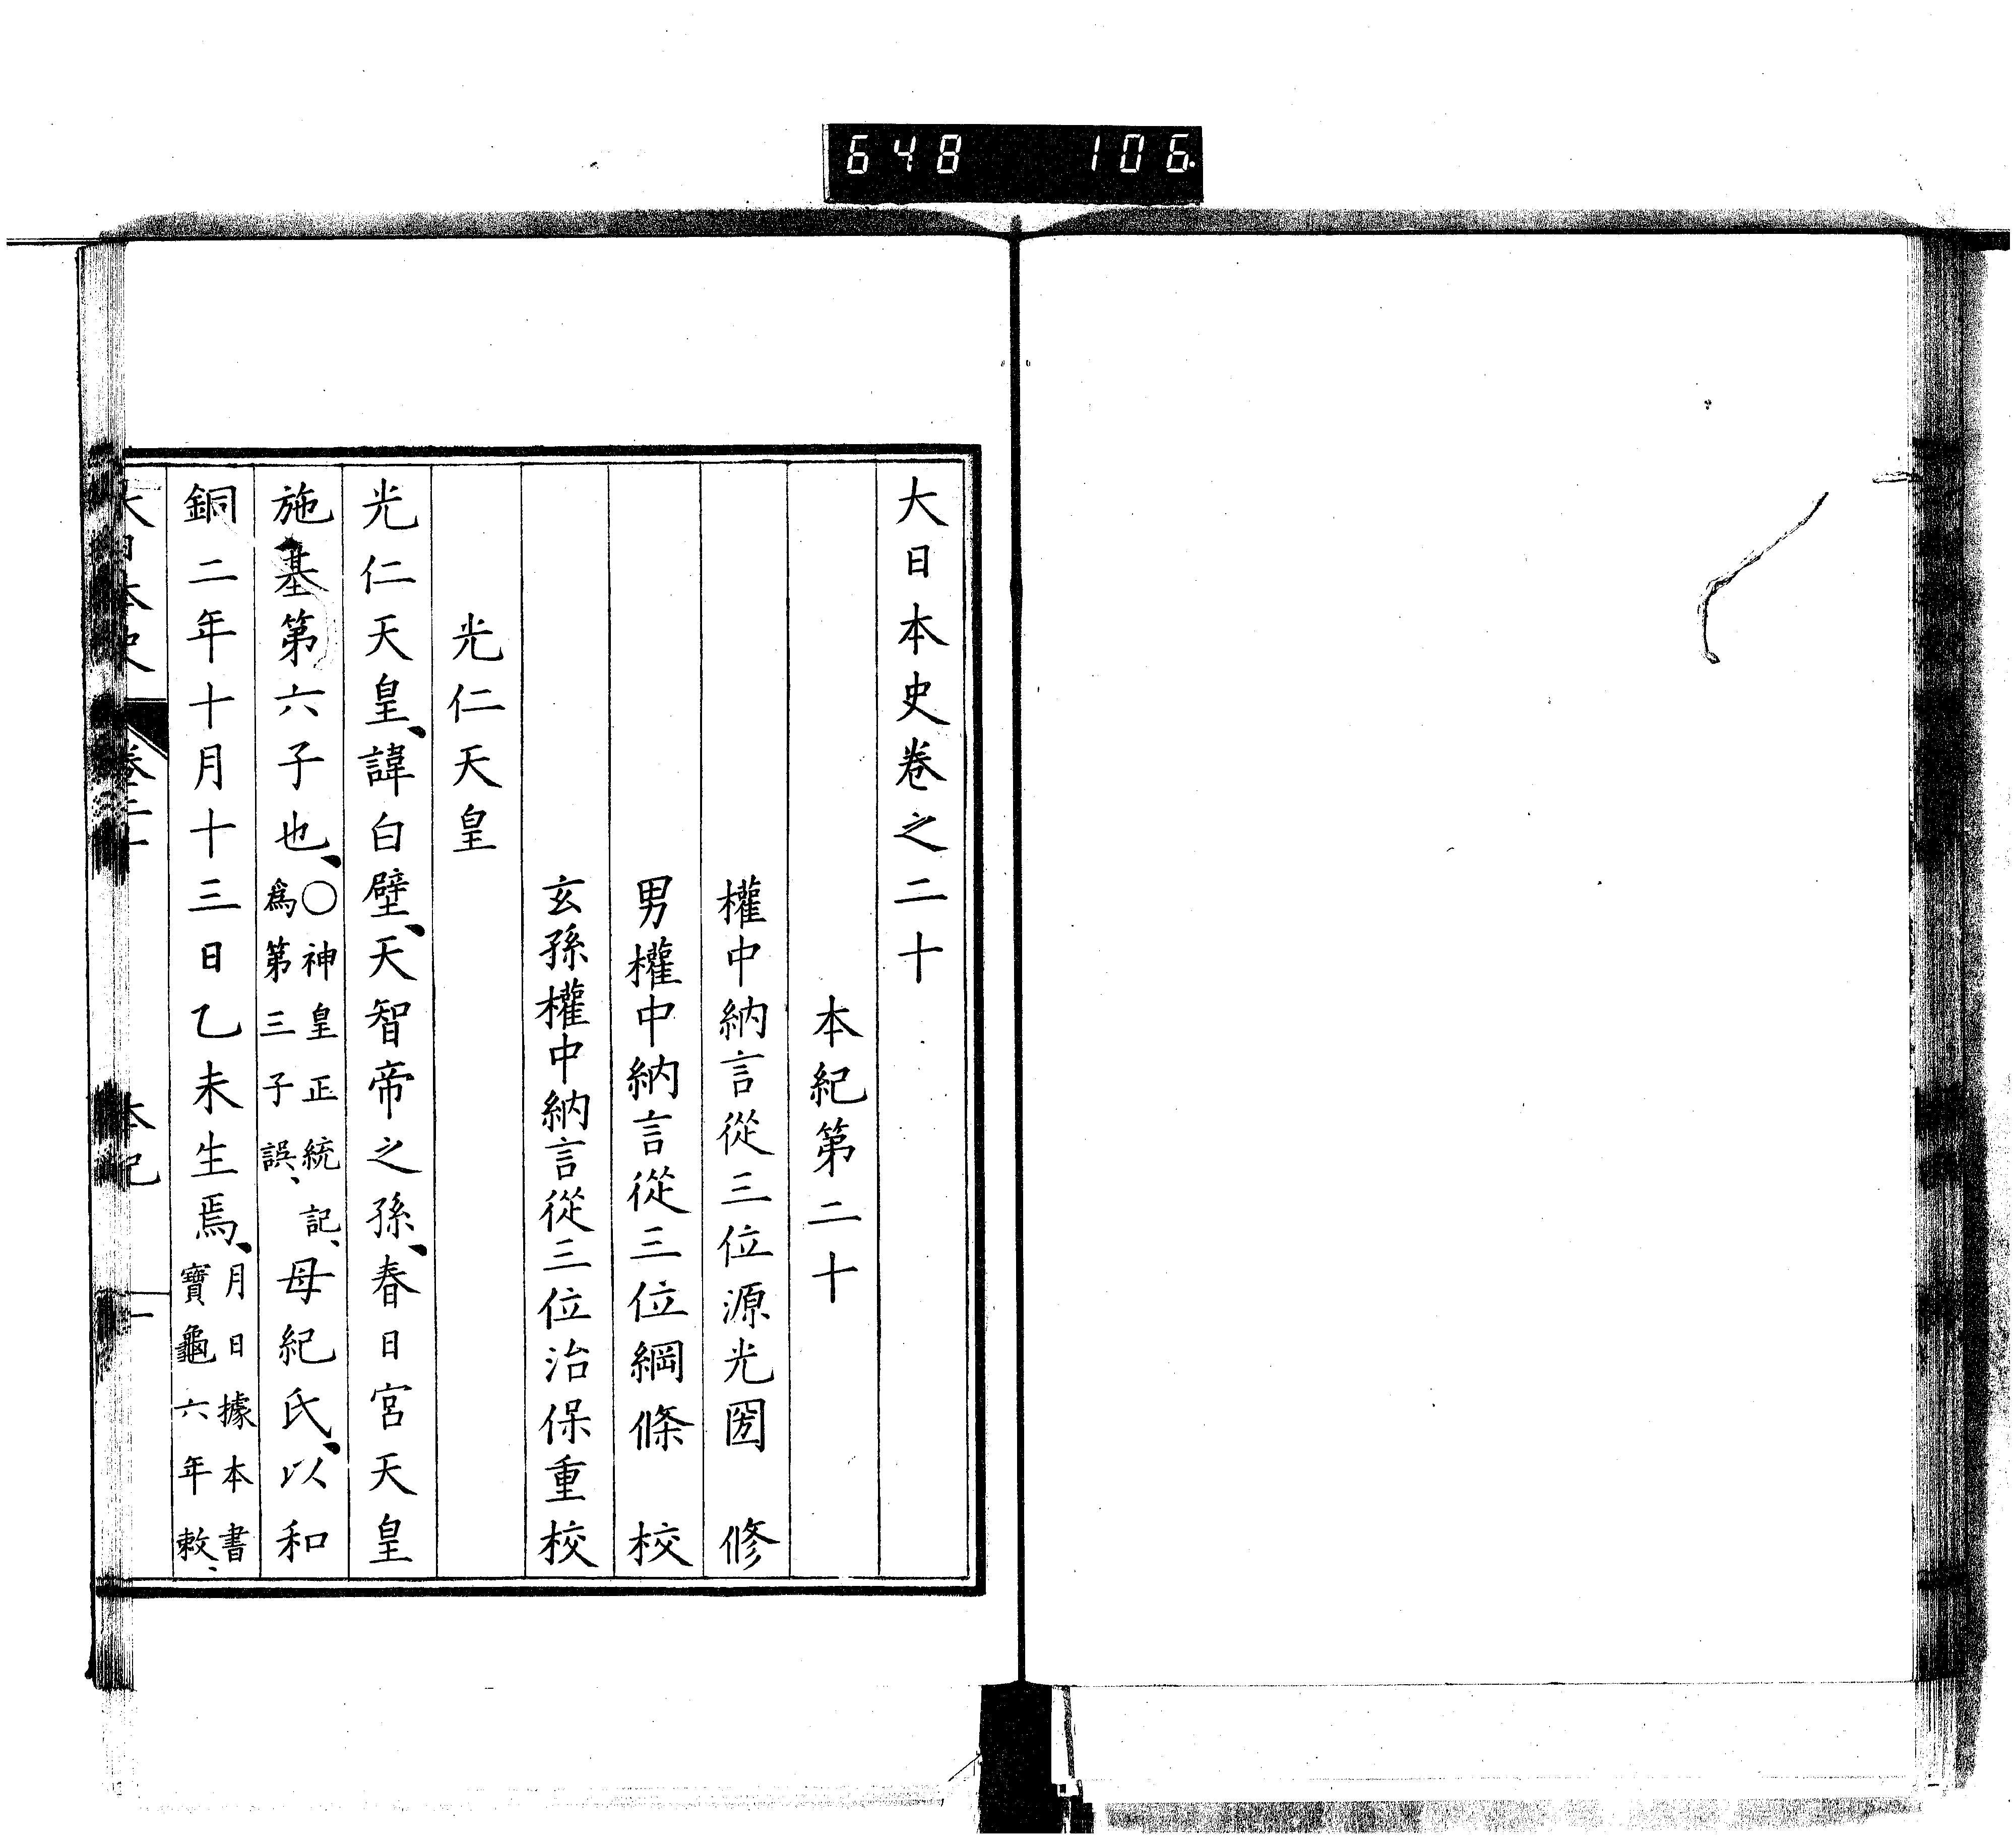 648 106.
大日本史卷之二十
本紀第二十
權中納言從三位源光圀 修
男權中納言從三位綱條 校
玄孫權中納言從三位治保重校
光仁天皇
光仁天皇、諱白壁、天智帝之孫、春日宮天皇
施基第六子也、○神皇正統記、爲第三子誤、母紀氏、以和
銅二年十月十三日乙未生焉、月日據本書寶龜六年敕、
大日本史 卷二十 本紀 一